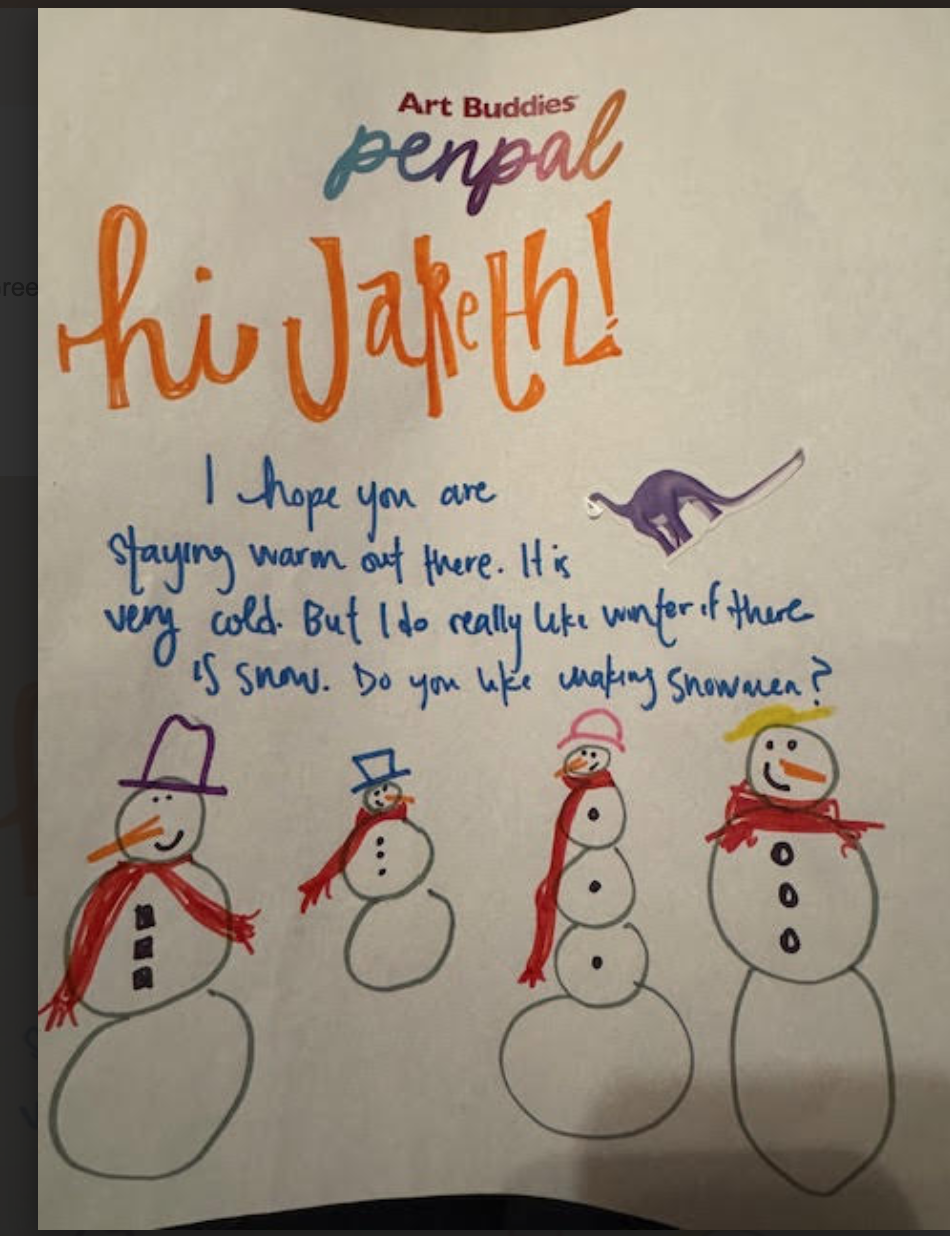 Art Buddies
penpal
hi Jareth!
I hope you are
staying warm out there. It is
very cold. But I do really like winter if there
is snow. Do you like making snowmen?